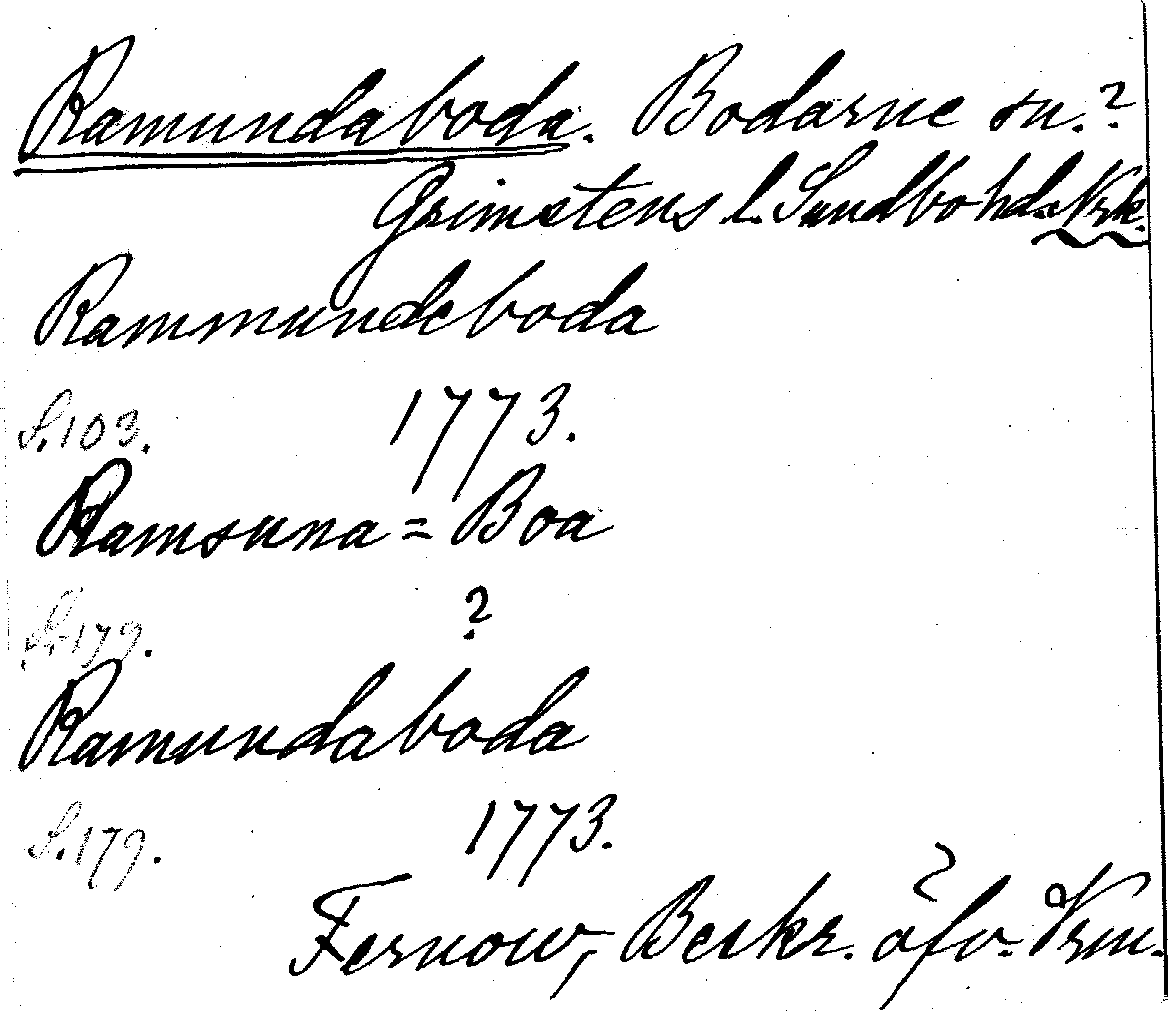 Ramundaboda. Bodarne sn.?
Grimstens l. Sundbo hd. Nrk.
Rammundeboda
S. 103. 1773.
Ramsuna=Boa
S. 179. ?
Ramundaboda
S. 179. 1773.
Fernow, Beskr. öfv. Vrm.